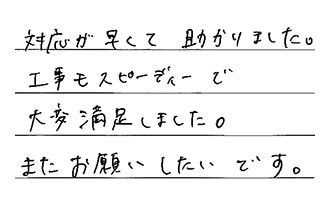 対応が早くて 助かりました。
工事もスピーディーで
大変満足しました。
またお願いしたいです。